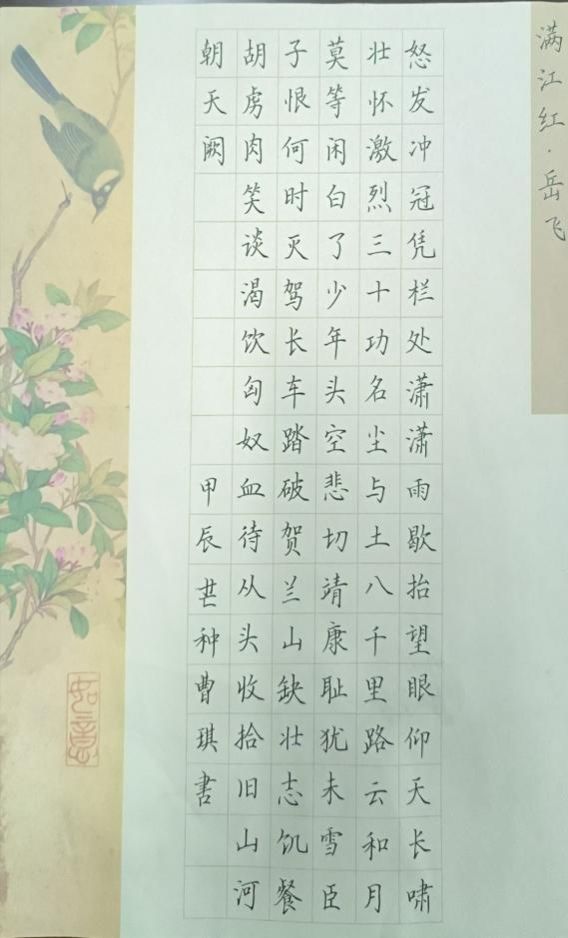 满江红·岳飞
怒发冲冠凭栏处潇潇雨歇抬望眼仰天长啸
壮怀激烈三十功名尘与土八千里路云和月
莫等闲白了少年头空悲切靖康耻犹未雪臣
子恨何时灭驾长车踏破贺兰山缺壮志饥餐
胡虏肉笑谈渴饮匈奴血待从头收拾旧山河
朝天阙 甲辰芒种曹琪书
如意